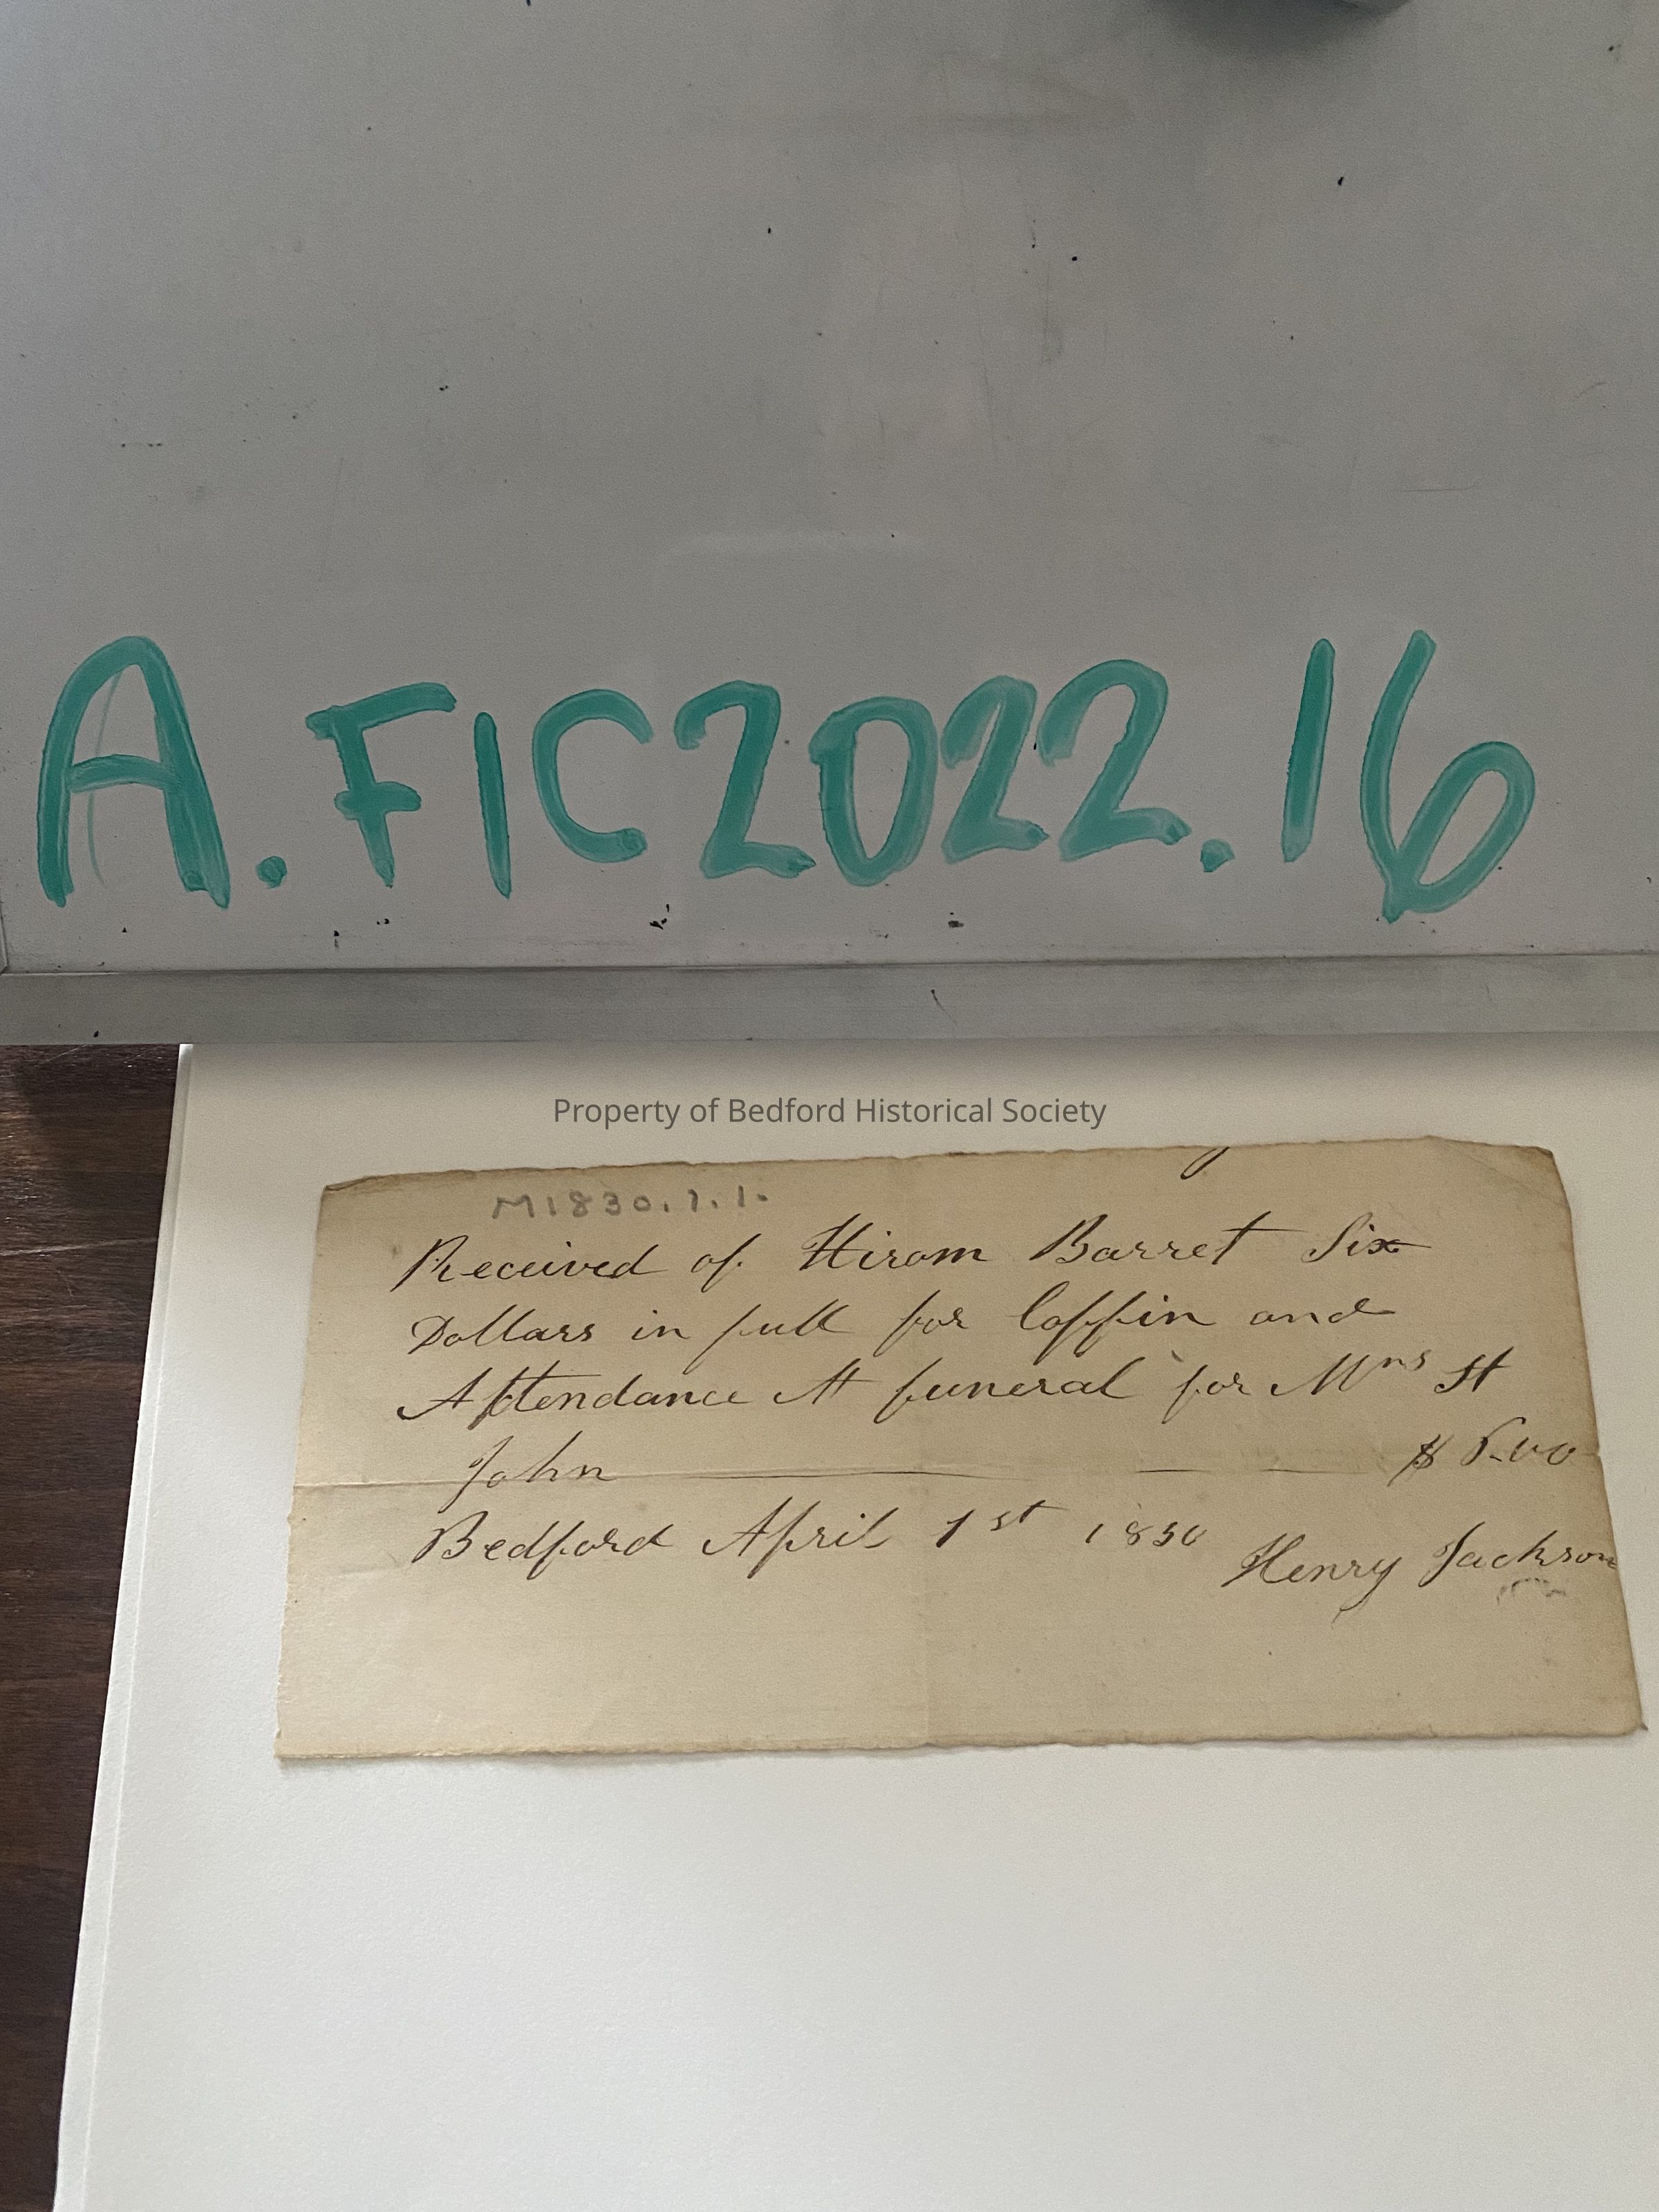 A.FIC2022.16
Property of Bedford Historical Society
M1830.1.1.
Received of Hirom Barret Six
Dollars in full for Coffin and
Attendance At funeral for Mrs St
John $ 6.00
Bedford April 1st 1830
Henry Jackson